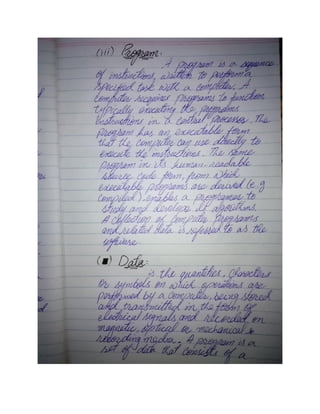 (iii) Program:
A program is a sequence
of instructions, written to perform a
specified task with a computer. A
computer requires programs to function
typically executing the programs
instructions in a central processor. The
program has an executable form
that the computer can use directly to
execute the instructions. The same
program in its human-readable
source code form, from which
executable programs are derived (e.g
compiled) enables a programmer to
study and develope it algorithms
A collection of computer programs
and related data is referred to as the
software
Data:
is the quantities, characters
or symbols on which operations are
performed by a computer, being stored
and transmitted in the form of
electrical signals, and recorded on
magnetic, optical or mechanical
recording media. A program is a
set of data that consists of a